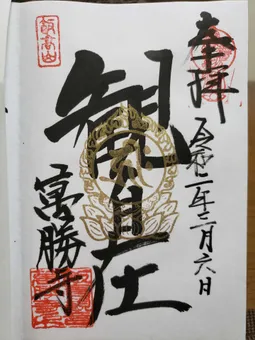 奉拝
令和二年三月六日
観自在
飯高山
萬勝寺